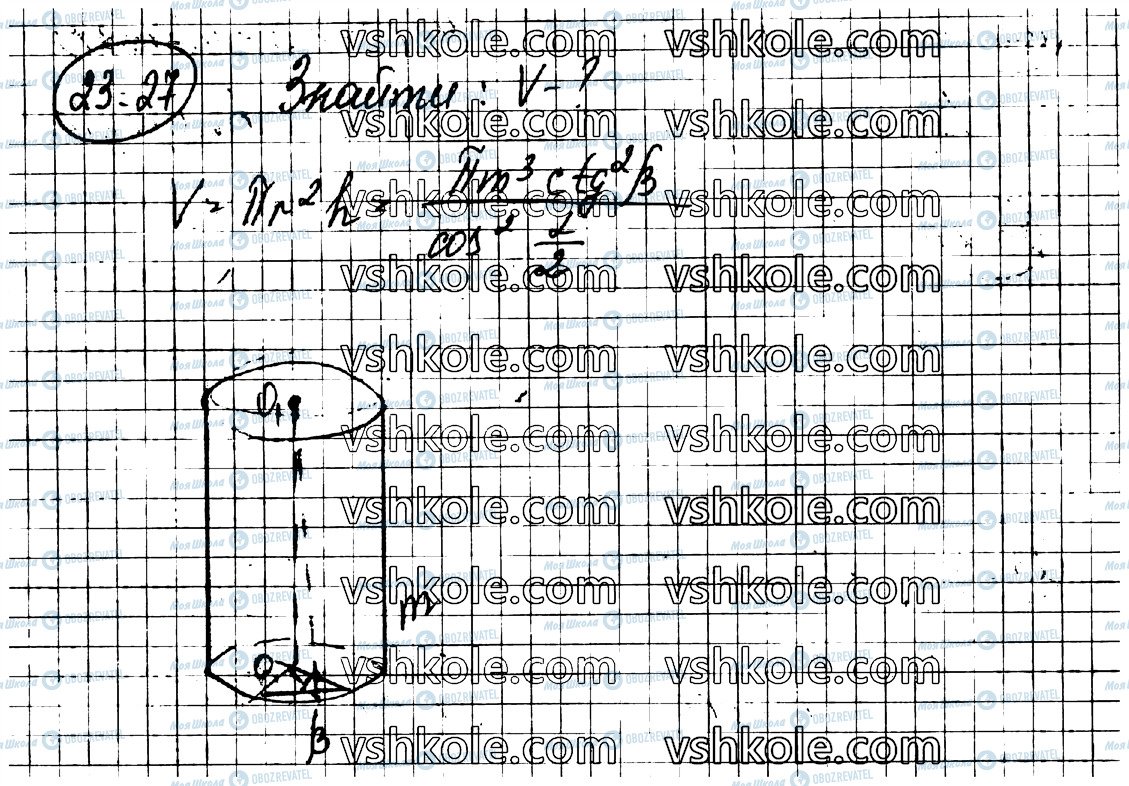 23-27 Знайти: V - ?
V = πr²h = πm³ ctg²β / cos² α/2
O₁
m
O
β
vshkole.com vshkole.com
vshkole.com vshkole.com
vshkole.com vshkole.com
vshkole.com vshkole.com
vshkole.com vshkole.com
vshkole.com vshkole.com
vshkole.com vshkole.com
vshkole.com vshkole.com
vshkole.com vshkole.com
vshkole.com vshkole.com
МояШкола OBOZREVATEL